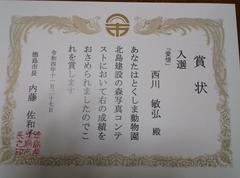 賞状
入選
「愛情」
西川 敏弘 殿
あなたはとくしま動物園
北島建設の森写真コンテ
ストにおいて右の成績を
おさめられましたのでこ
れを賞します
令和四年十一月二十七日
徳島市長 内藤 佐和子